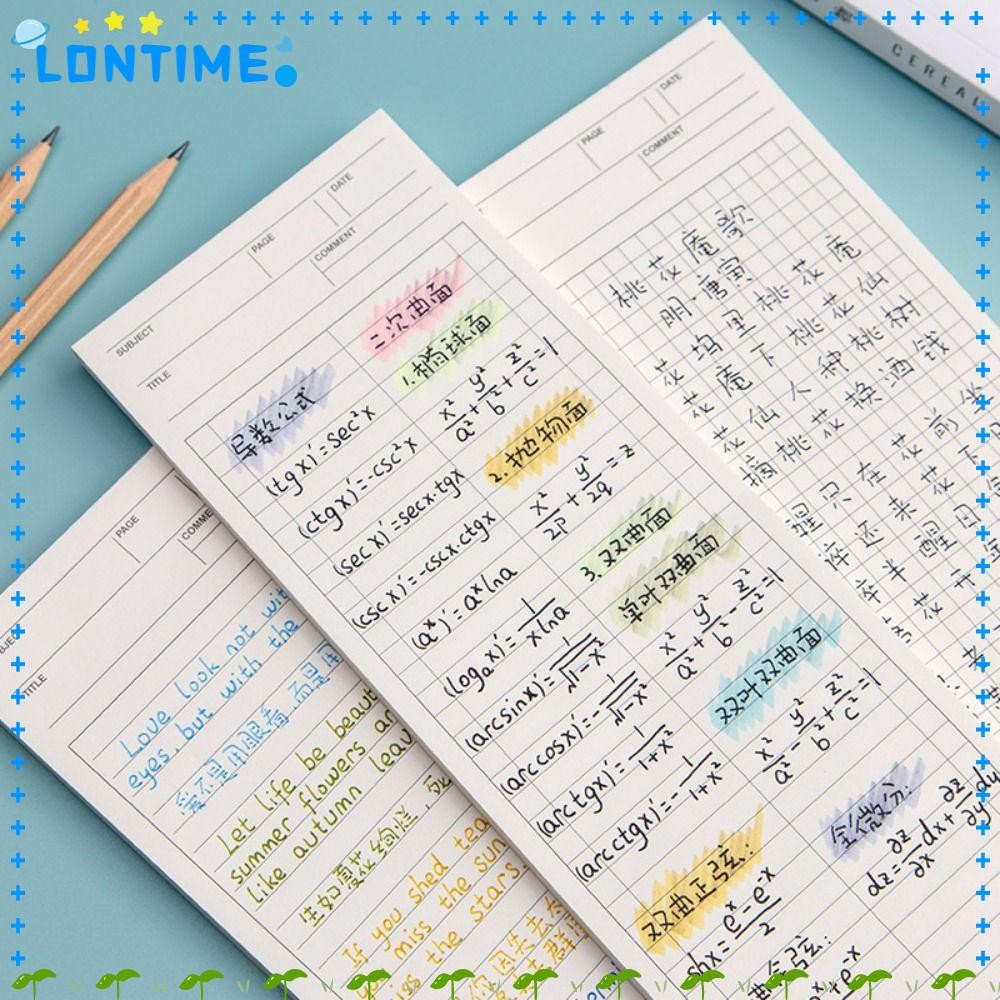 LONTIME
CEREAL
SUBJECT
PAGE
DATE
TITLE
COMMENT
导数公式
(tgx)'=sec²x
(ctgx)'=-csc²x
(secx)'=secx·tgx
(cscx)'=-cscx·ctgx
(aˣ)'=aˣlna
(logₐx)'=1/(xlna)
(arcsinx)'=1/√(1-x²)
(arccosx)'=-1/√(1-x²)
(arctgx)'=1/(1+x²)
(arcctgx)'=-1/(1+x²)
双曲正弦:
shx=(eˣ-e⁻ˣ)/2
二次曲面
1.椭球面
x²/a²+y²/b²+z²/c²=1
2.抛物面
x²/2p+y²/2q=z
3.双曲面
单叶双曲面
x²/a²+y²/b²-z²/c²=1
双叶双曲面
x²/a²-y²/b²+z²/c²=1
全微分:
dz=∂z/∂x dx+∂z/∂y dy
PAGE
DATE
COMMENT
桃花庵歌
明·唐寅
花坞里桃花庵
花庵下桃花仙
花仙人种桃树
摘桃花换酒钱
醒只在花前坐
醉还来花下
醉半醒日
花
PAGE
TITLE
Love look not wit
eyes, but with the
爱不是用眼看 而是用
Let life be beaut
summer flowers an
like autumn leav
生如夏花绚烂
If you shed tea
miss the sun
the stars.